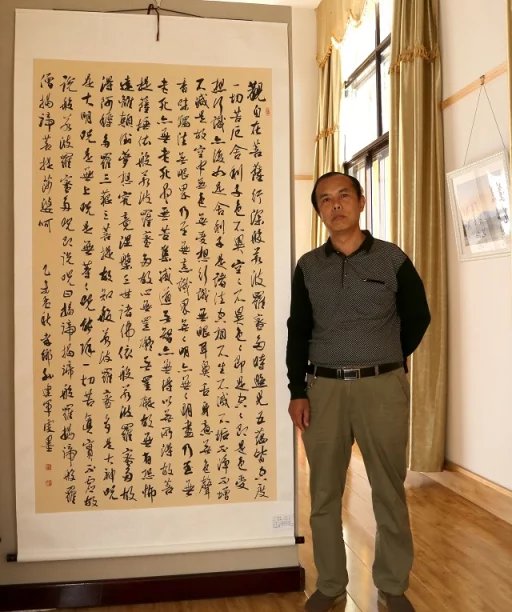 觀自在菩薩行深般若波羅蜜多時照見五蘊皆空度
一切苦厄舍利子色不異空々不異色々即是空々即是色受
想行識亦復如是舍利子是諸法空相不生不滅不垢不淨不增
不減是故空中無色無受想行識無眼耳鼻舌身意無色聲
香味觸法無眼界乃至無意識界無々明亦無々明盡乃至無
老死亦無老死盡無苦集滅道無智亦無得以無所得故菩
提薩埵依般若波羅蜜多故心無罣礙無罣礙故無有恐怖
遠離顛倒夢想究竟涅槃三世諸佛依般若波羅蜜多故
得阿耨多羅三藐三菩提故知般若波羅蜜多是大神咒
是大明咒是無上咒是無等々咒能除一切苦真實不虛故
說般若波羅蜜多咒即說咒曰揭諦揭諦般羅揭諦般羅
僧揭諦菩提莎婆訶 乙未 秋 建軍